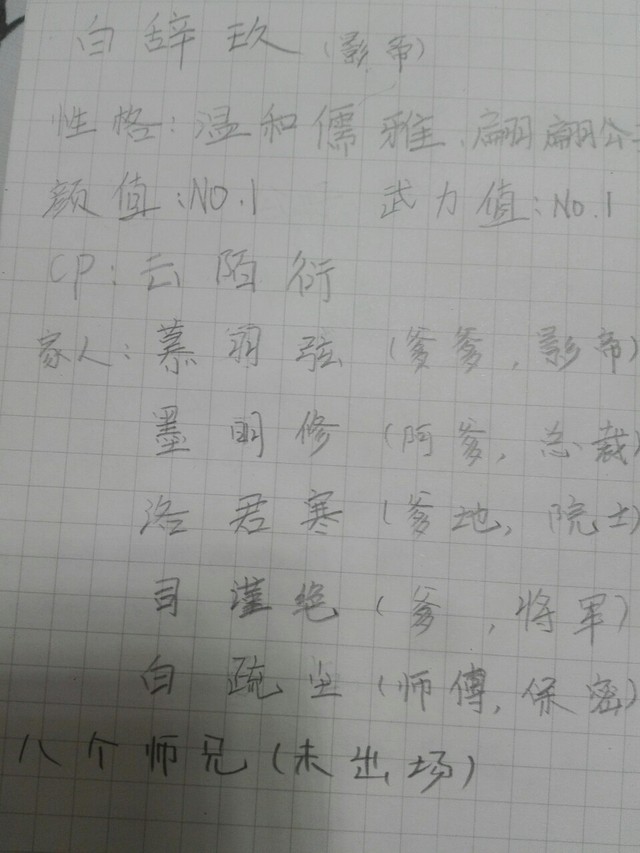 白辞玖(影帝)
性格:温和儒雅,翩翩公
颜值:NO.1 武力值:No.1
CP:云陌衍
家人:慕羽弦(爹爹,影帝)
墨明修(阿爹,总裁)
洛君寒(爹地,院士)
司谨绝(爹,将军)
白疏尘(师傅,保密)
八个师兄(未出场)